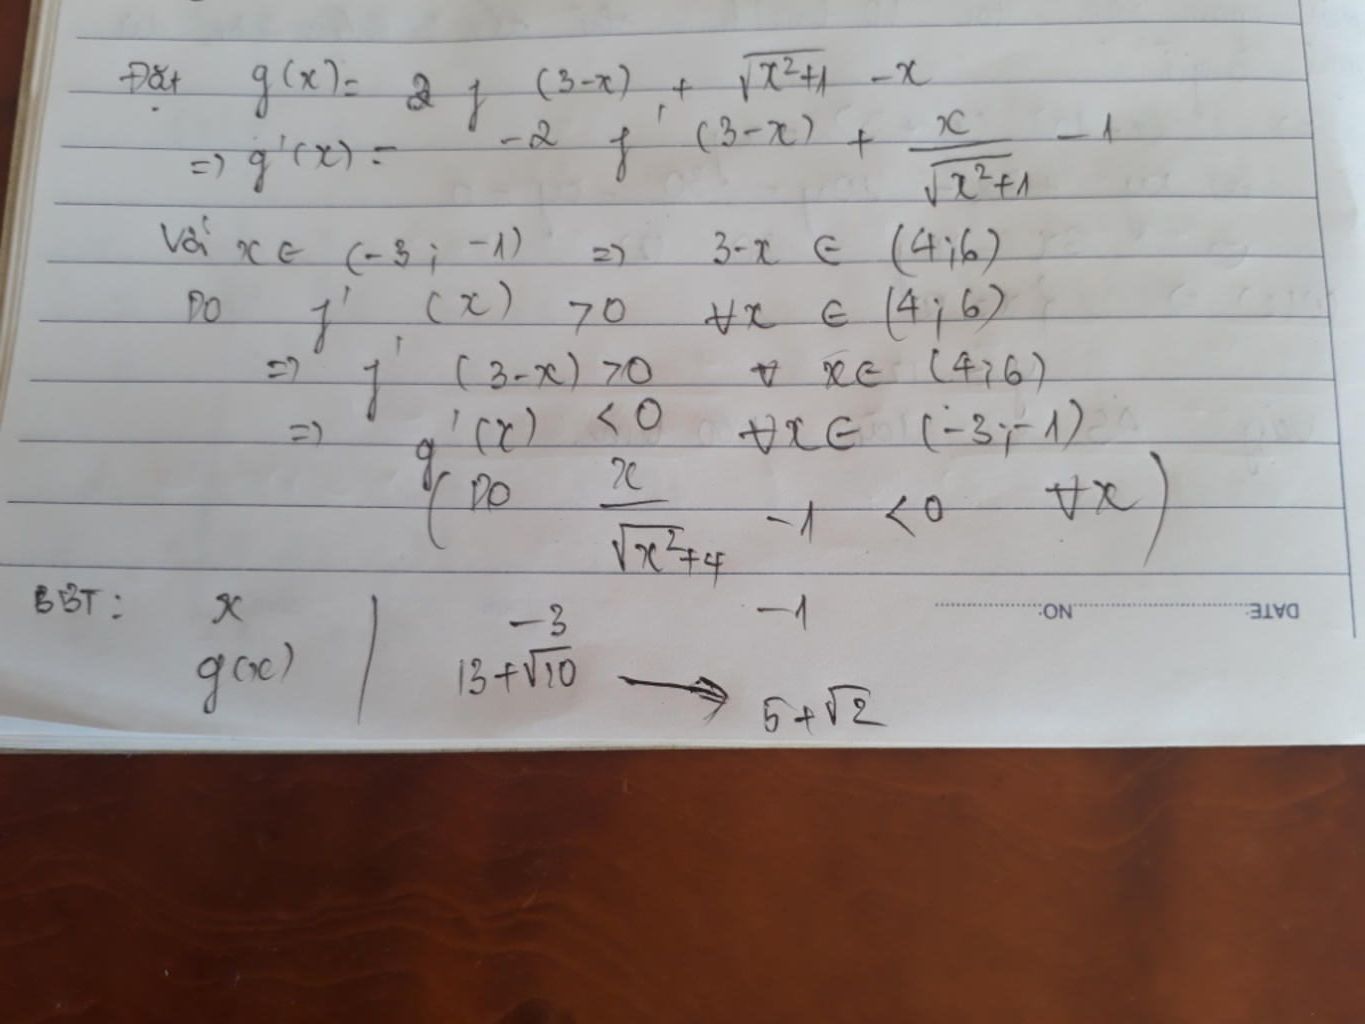 Đặt g(x) = 2 f (3-x) + √(x²+1) - x
=> g'(x) = -2 f' (3-x) + x/√(x²+1) - 1
Với x ∈ (-3; -1) => 3-x ∈ (4;6)
Do f' (x) >0 ∀x ∈ (4;6)
=> f' (3-x) >0 ∀ x∈ (4;6)
=> g'(x) <0 ∀x ∈ (-3;-1)
(Do x/√(x²+4) -1 <0 ∀x)
BBT: x | -3 -1
g(x) | 13+√10 → 5+√2
DATE: NO: